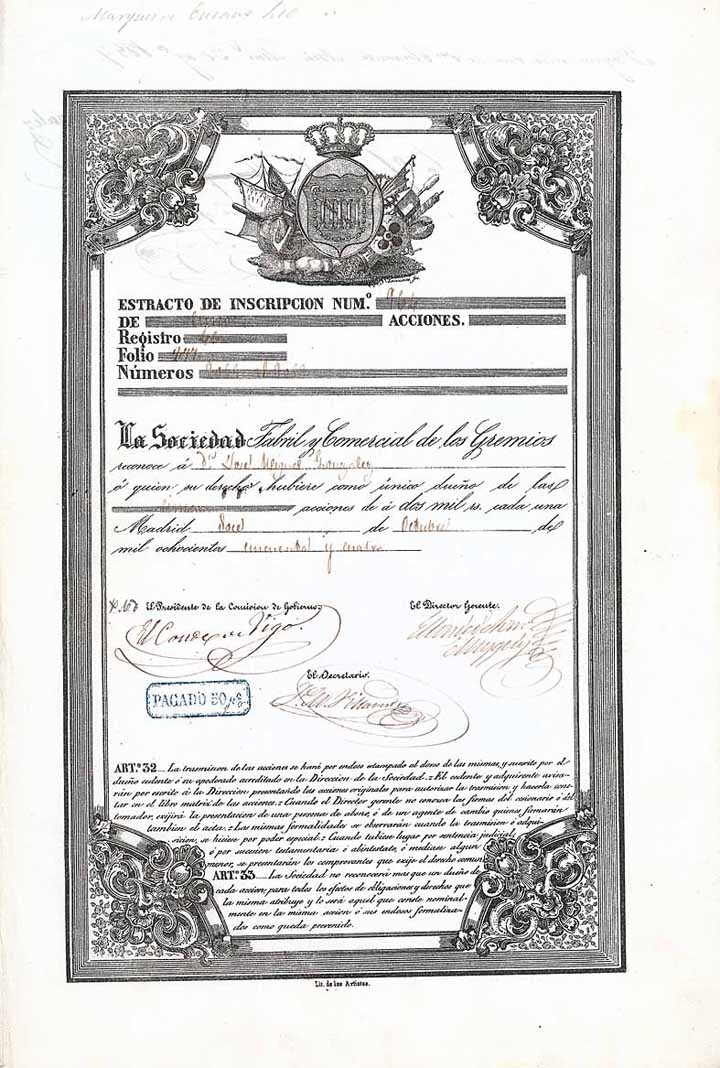 ESTRACTO DE INSCRIPCION NUM.º 964
DE ACCIONES.
Registro
Folio
Números
La Sociedad Fabril y Comercial de los Gremios
reconoce á Dn. José Miguel Gonzalez
ó quien su derecho hubiere como único dueño de las
acciones de á dos mil rs. cada una
Madrid doce de Octubre de
mil ochocientos cincuenta y cuatro
El Presidente de la Comision de Gobierno.
El Director Gerente.
El Conde de Vigo
El Secretario.
PAGADO 50 p%
ART.º 32 _ La trasmision de las acciones se hará por endoso estampado al dorso de las mismas, y suscrito por el
dueño cedente ó su apoderado acreditado en la Direccion de la Sociedad.= El cedente y adquirente avisa-
rán por escrito á la Direccion presentando las acciones originales para autorizar la trasmision y hacerla cons-
tar en el libro matriz de las acciones.= Cuando el Director gerente no conozca las firmas del cesionario ó del
tomador, exijirá la presentacion de una persona de abono, ó de un agente de cambio quienes firmarán
tambien el acta.= Las mismas formalidades se observarán cuando la trasmision ó adqui-
sicion, se hiciese por poder especial.= Cuando tubiese lugar por sentencia judicial,
ó por succion testamentaria ó abintestato, ó mediase algun
menor, se presentarán los comprobantes que exije el derecho comun.
ART.º 33 _ La Sociedad no reconocerá mas que un dueño de
cada accion, para todos los efectos de obligaciones y derechos que
la misma atribuye y lo será aquel que conste nominal-
mente en la misma accion ó sus endosos formaliza-
dos como queda prevenido.
Lit. de los Artistas.